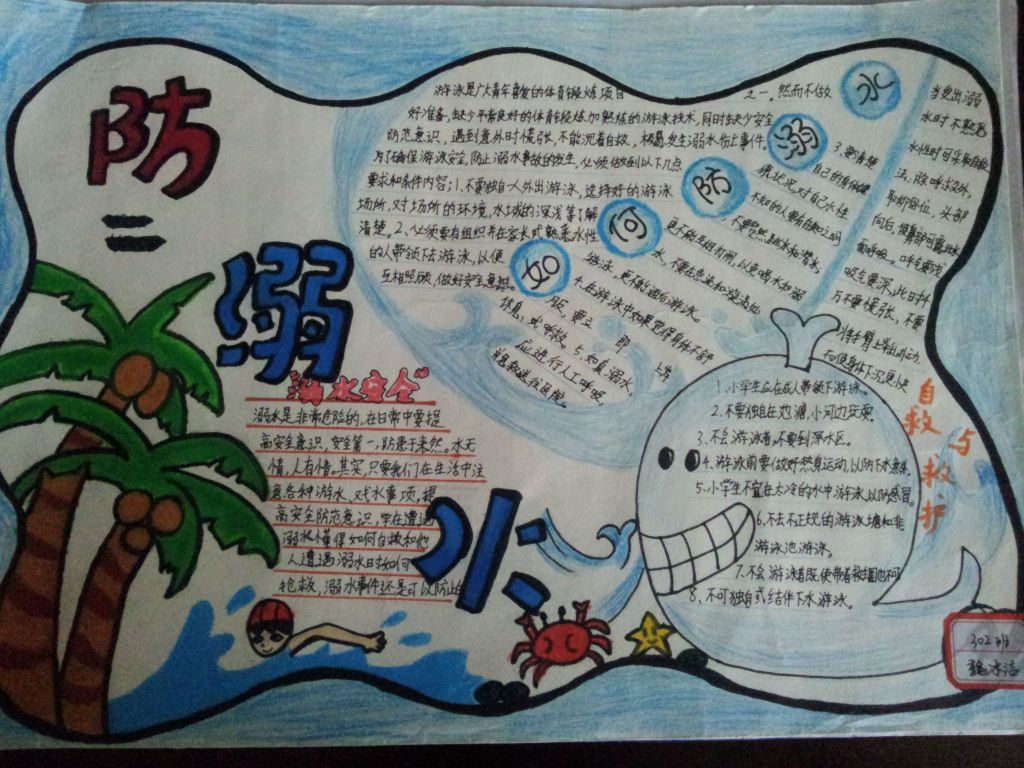 防
溺
水
“溺水安全”
溺水是非常危险的，在日常中要提
高安全意识，安全第一，防患于未然。水无
情，人有情。其实，只要我们在生活中注
意各种游水、戏水事项，提
高安全防范意识，学在遭遇
溺水懂得如何自救和他
人遭遇溺水时如何
抢救，溺水事件还是可以防止的
游泳是广大青年喜爱的体育锻炼项目
之一。然而不做
好准备，缺少平常良好的体育锻炼加熟练的游泳技术，同时缺少安全
防范意识，遇到意外时慌张，不能沉着自救，极易发生溺水伤亡事件。
为了确保游泳安全，防止溺水事故的发生，必须做到以下几点
要求和条件内容：1、不要独自一人外出游泳，选择好的游泳
场所，对场所的环境，水域的深浅等了解
清楚。2、必须要有组织并在家长或熟悉水性
的人带领下去游泳，以便
互相照顾，做好安全意识。
如何防溺水
3、要清楚
自己的身体健
康状况，对自己水性
不知的人要有自知之明
更不能互相打闹，以免喝水和溺
水，不要在急流和漩涡处
游泳，更不能酒后游泳。
4、在游泳中如果觉得身体不舒
服，要立即上岸
休息，或呼救。5、如有溺水，
应进行人工呼吸，
当发出溺
水时不熟悉
水性时可采取自救
法：除呼救外，
头部
向后，使鼻部可露出水
面呼吸。呼气要浅
吸气要深，此时千
万不要慌张，不要
将手臂上举乱动
而使身体下沉更快
自救与救护
1、小学生应在成人带领下游泳。
2、不要独自在池塘，小河边玩耍
3、不会游泳者，不要到深水区。
4、游泳前要做好热身运动，以防下水意外。
5、小学生不宜在太冷的水中游泳，以防感冒。
6、不去不正规的游泳塘和非
游泳池游泳。
7、不会游泳者既使带着救生圈也不可
8、不可独自或结伴下水游泳。
302班